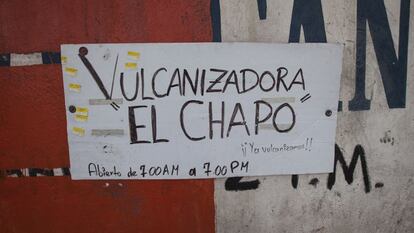 VULCANIZADORA
"EL CHAPO"
¡¡Ya vulcanizamos!!
Abierto de 7:00 AM a 7:00 PM